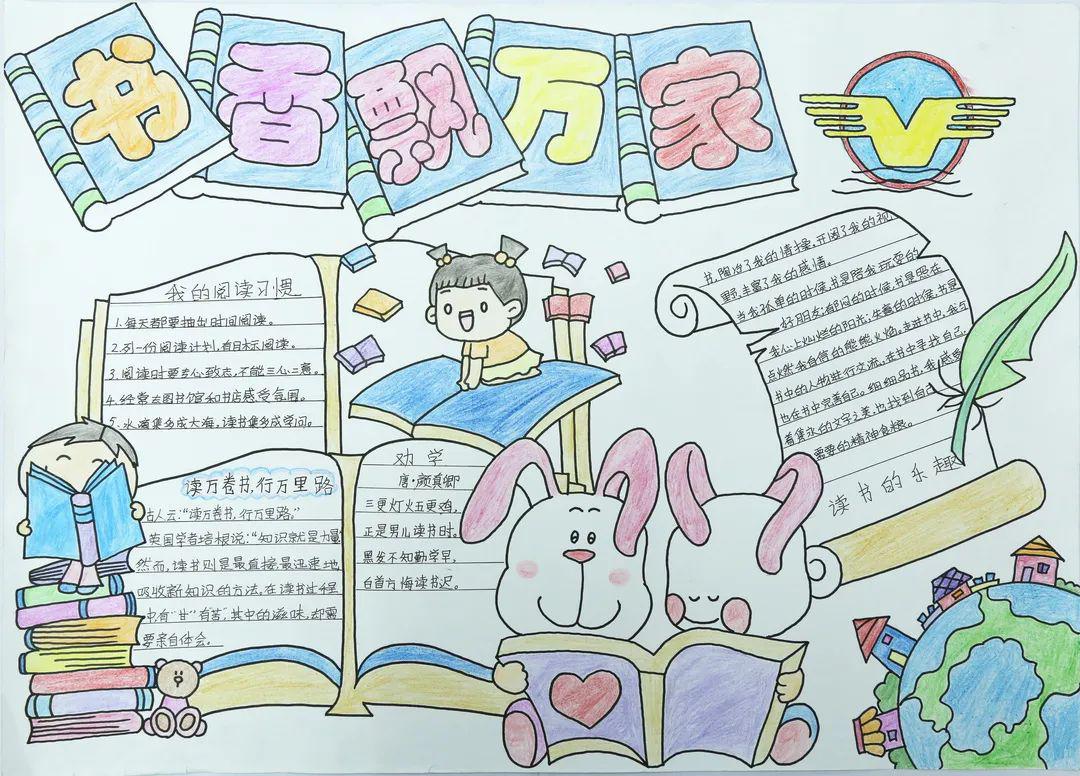 书香飘万家
我的阅读习惯
1.每天都要抽出时间阅读。
2.列一份阅读计划,有目标阅读。
3.阅读时要专心致志,不能三心二意。
4.经常去图书馆和书店感受氛围。
5.水滴集多成大海,读书集多成学问。
读万卷书,行万里路
古人云:“读万卷书,行万里路。”
英国学者培根说:“知识就是力量
然而,读书则是最直接最迅速地
吸收新知识的方法,在读书过程
中有“甘”有“苦”,其中的滋味,却需
要亲自体会。
劝学
唐·颜真卿
三更灯火五更鸡,
正是男儿读书时。
黑发不知勤学早,
白首方悔读书迟。
书,陶冶了我的情操,开阔了我的视
野,丰富了我的感情。
当我孤单的时候,书是陪我玩耍的
好朋友;郁闷的时候,书是照在
我心上灿烂的阳光;失意的时候,书是
点燃我自信的熊熊火焰。走进书中,我与
书中的人物进行交流,在书中寻找自己
也在书中完善自己。细细品书,我感受
着隽永的文字之美,也找到自己
需要的精神食粮。
读书的乐趣